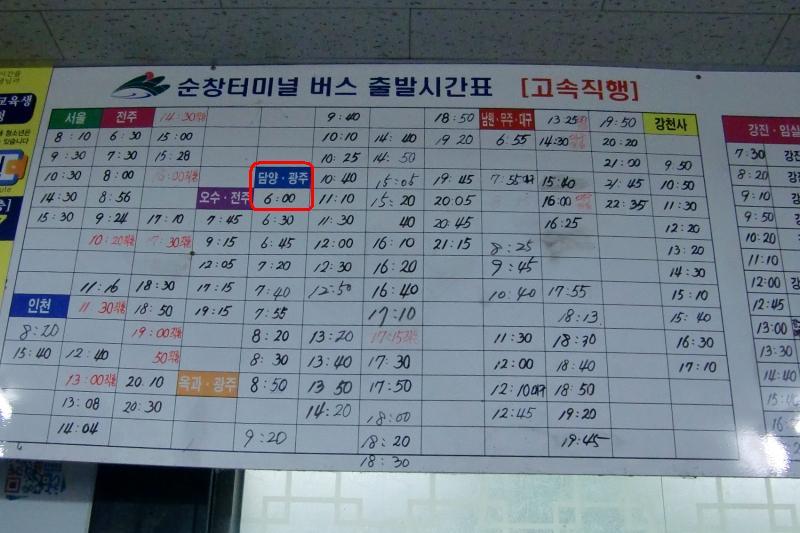 순창터미널 버스 출발시간표 [고속직행]
교육생
서울 전주 14:30직통 9:40 18:50 남원·무주·대구 13:25 19:50 강천사 강진·임실
8:10 6:30 15:00 10:10 14:40 19:20 6:55 14:30 20:20 7:30
9:30 7:30 15:28 10:25 14:50 21:00 9:50 8:20
10:30 8:00 담양·광주 10:40 15:05 19:45 7:55 15:40 21:45 10:50 9:10
14:30 8:56 오수·전주 6:00 11:10 15:20 20:05 16:00 22:35 11:30 9:50
15:30 9:24 17:10 7:45 6:30 11:30 40 20:45 16:25 12:20 10:20
10:20직통 17:30직통 9:15 6:45 12:00 16:10 21:15 8:25 13:20 11:10
12:05 7:20 12:30 16:20 9:45 14:30 12:00
11:16 18:30 17:15 7:40 12:50 16:40 10:40 17:55 15:10 12:45
인천 11:30직통 18:50 19:15 7:55 17:10 18:13 15:40 13:00
8:20 19:00직통 8:20 13:20 17:15직통 11:30 18:30 16:30 13:30
15:40 12:40 50직통 8:30 13:40 17:30 12:00 18:40 17:10 14:40
13:00직통 20:10 옥과·광주 8:50 13:50 17:50 12:10 18:50
13:08 20:30 14:20 18:00 12:45 19:20
14:04 9:20 18:20 19:45
18:30